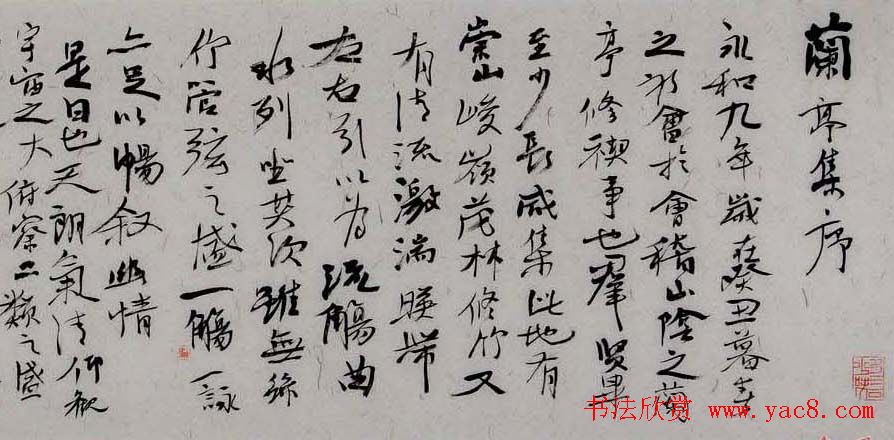 蘭亭集序
永和九年歲在癸丑暮春
之初會於會稽山陰之蘭
亭修禊事也羣賢畢
至少長咸集此地有
崇山峻嶺茂林修竹又
有清流激湍暎帶
左右引以為流觴曲
水列坐其次雖無絲
竹管弦之盛一觴一詠
亦足以暢叙幽情
是日也天朗氣清仰觀
宇宙之大俯察品類之盛
书法欣赏 www.yac8.com